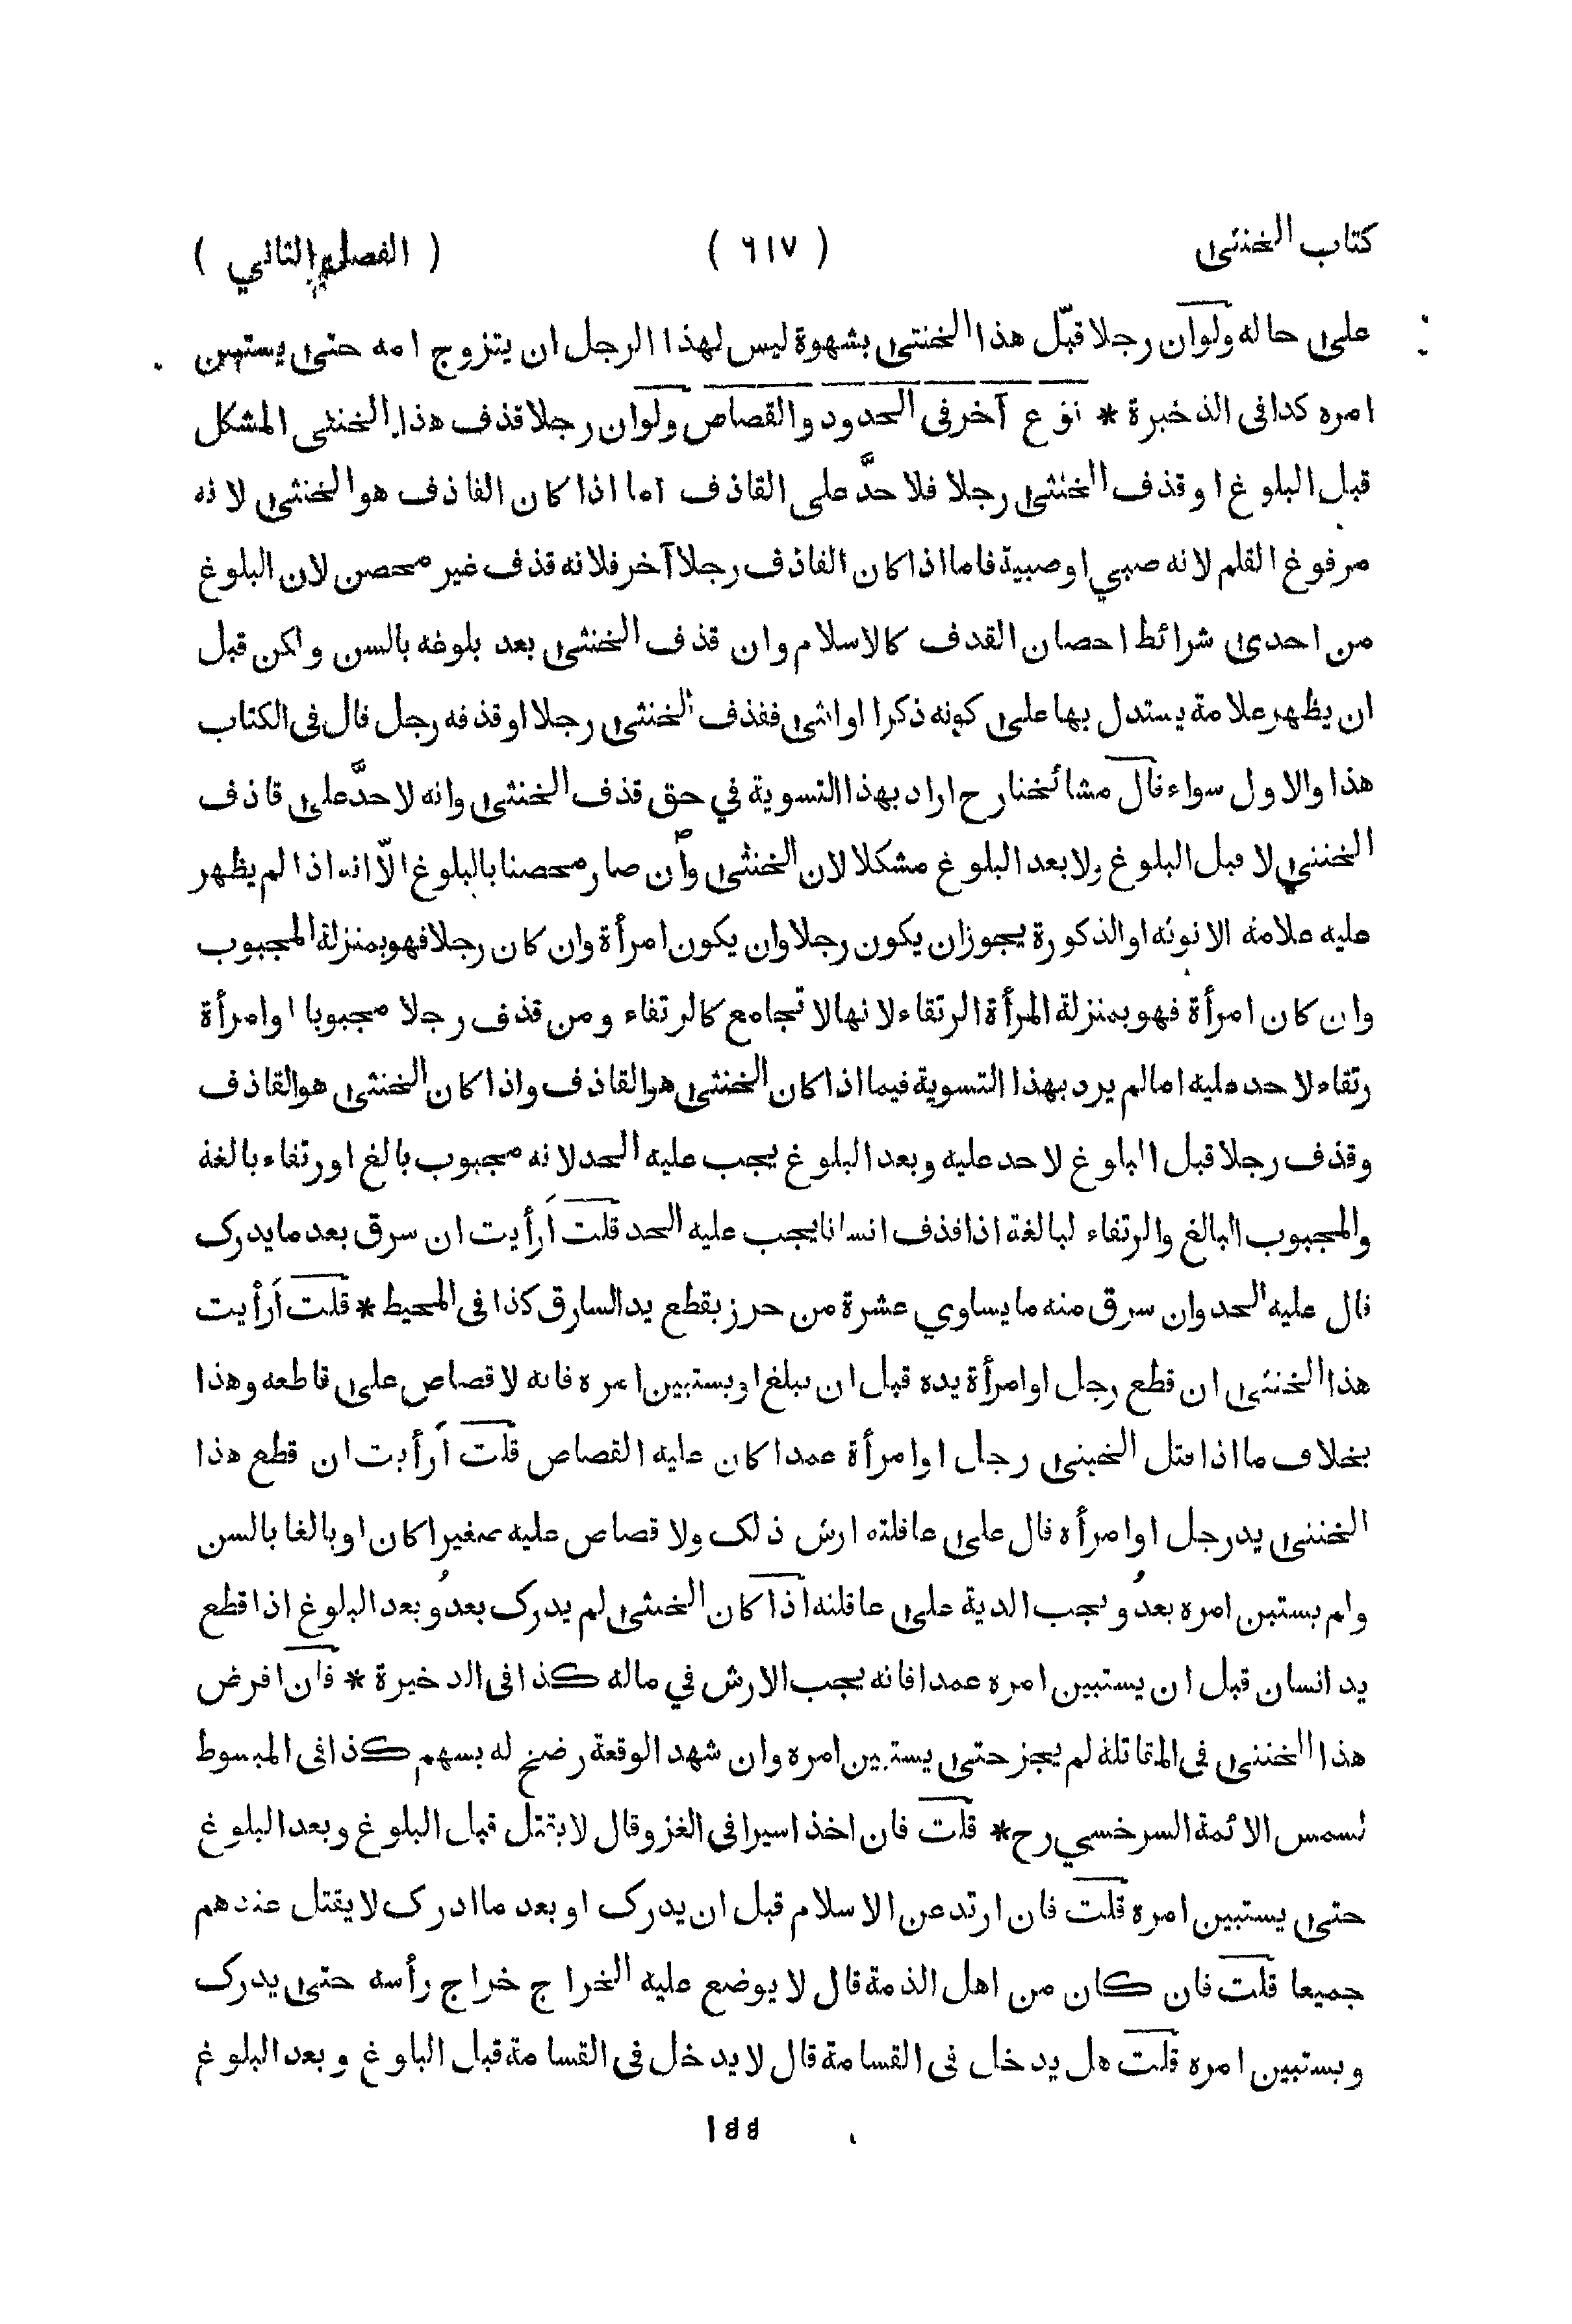 كتاب الخنثى ( ٦١٧ ) ( الفصل الثاني )
على حاله ولو ان رجلا قبّل هذا الخنثى بشهوة ليس لهذا الرجل ان يتزوج امه حتى يستبين
امره كذا في الذخيرة * نوع آخر في الحدود والقصاص ولو ان رجلا قذف هذا الخنثى المشكل
قبل البلوغ او قذف الخنثى رجلا فلا حدَّ على القاذف اما اذا كان القاذف هو الخنثى لانه
مرفوع القلم لانه صبي او صبية فاما اذا كان القاذف رجلا آخر فلانه قذف غير محصن لان البلوغ
من احدى شرائط احصان القذف كالاسلام وان قذف الخنثى بعد بلوغه بالسن ولكن قبل
ان يظهر علامة يستدل بها على كونه ذكرا او انثى فقذف الخنثى رجلا او قذفه رجل قال في الكتاب
هذا والاول سواء قال مشائخنا رح اراد بهذا التسوية في حق قذف الخنثى وانه لا حدَّ على قاذف
الخنثى لا قبل البلوغ ولا بعد البلوغ مشكلا لان الخنثى وان صار محصنا بالبلوغ الّا انه اذا لم يظهر
عليه علامة الانوثة او الذكورة يجوز ان يكون رجلا وان يكون امرأة وان كان رجلا فهو بمنزلة المجبوب
وان كان امرأة فهو بمنزلة المرأة الرتقاء لانها لا تجامع كالرتقاء ومن قذف رجلا مجبوبا او امرأة
رتقاء لا حد عليه اما لم يرد بهذا التسوية فيما اذا كان الخنثى هو القاذف واذا كان الخنثى هو القاذف
وقذف رجلا قبل البلوغ لا حد عليه وبعد البلوغ يجب عليه الحد لانه مجبوب بالغ او رتقاء بالغة
والمجبوب البالغ والرتقاء لبالغة اذا قذف انسانا يجب عليه الحد قلت أرأيت ان سرق بعد ما يدرك
قال عليه الحد وان سرق منه ما يساوي عشرة من حرز يقطع يد السارق كذا في المحيط * قلت أرأيت
هذا الخنثى ان قطع رجل او امرأة يده قبل ان يبلغ او يستبين امره فانه لا قصاص على قاطعه وهذا
بخلاف ما اذا قتل الخنثى رجل او امرأة عمدا كان عليه القصاص قلت أرأيت ان قطع هذا
الخنثى يد رجل او امرأة قال على عاقلته ارش ذلك ولا قصاص عليه صغيرا كان او بالغا بالسن
ولم يستبن امره بعدُ وتجب الدية على عاقلته اذا كان الخنثى لم يدرك بعدُ وبعد البلوغ اذا قطع
يد انسان قبل ان يستبين امره عمدا فانه يجب الارش في ماله كذا في الذخيرة * فان افرض
هذا الخنثى في المقاتلة لم يجز حتى يستبين امره وان شهد الوقعة رضخ له بسهم كذا في المبسوط
لشمس الائمة السرخسي رح * قلت فان اخذ اسيرا في الغزو قال لا يقتل قبل البلوغ وبعد البلوغ
حتى يستبين امره قلت فان ارتد عن الاسلام قبل ان يدرك او بعد ما ادرك لا يقتل عندهم
جميعا قلت فان كان من اهل الذمة قال لا يوضع عليه الخراج خراج رأسه حتى يدرك
ويستبين امره قلت هل يدخل في القسامة قال لا يدخل في القسامة قبل البلوغ وبعد البلوغ